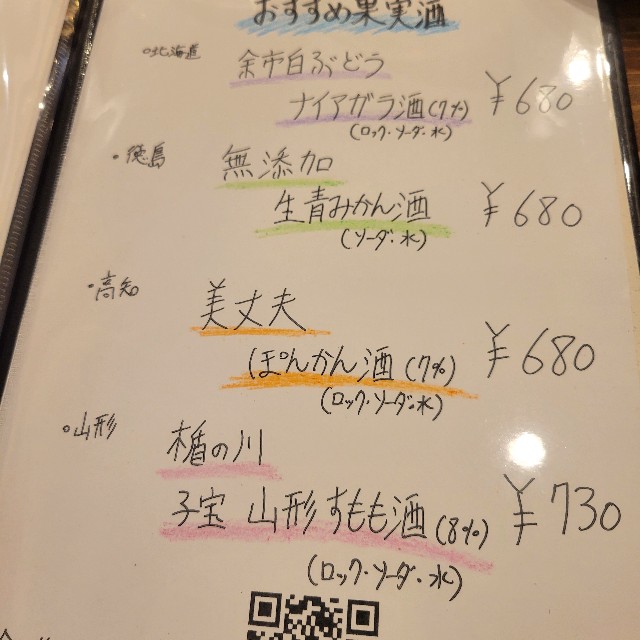 おすすめ果実酒
•北海道 余市白ぶどう
ナイアガラ酒(7%) ¥680
(ロック・ソーダ・水)
•徳島 無添加
生青みかん酒 ¥680
(ソーダ・水)
•高知 美丈夫
ぽんかん酒(7%) ¥680
(ロック・ソーダ・水)
•山形 楯の川
子宝 山形すもも酒(8%) ¥730
(ロック・ソーダ・水)